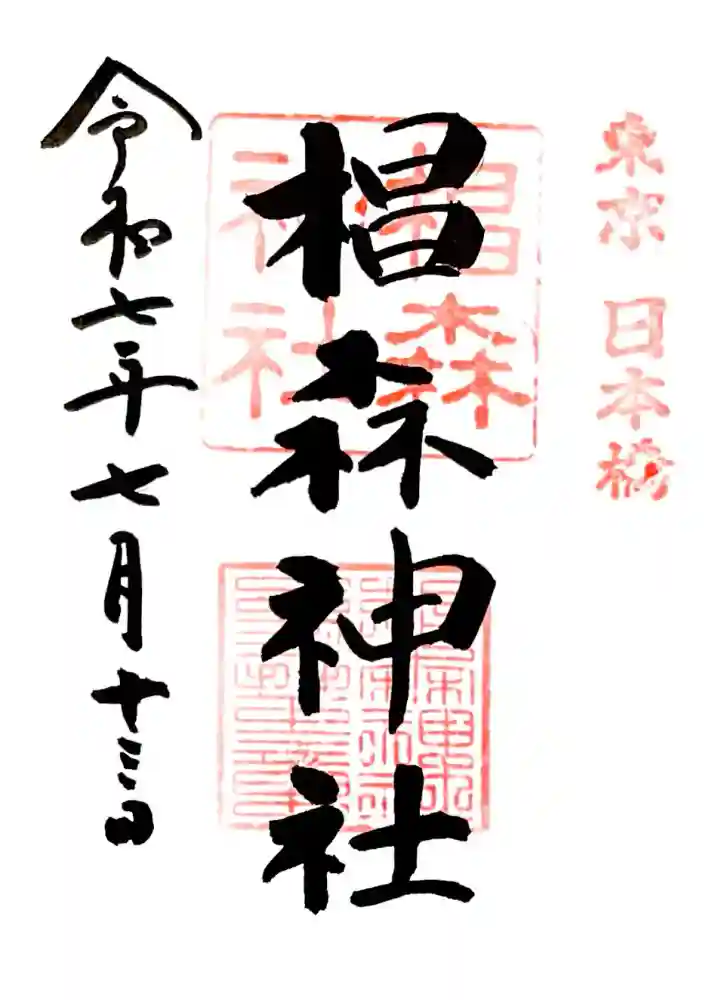 東京 日本橋
椙森神社
椙森
神社
令和七年七月十三日